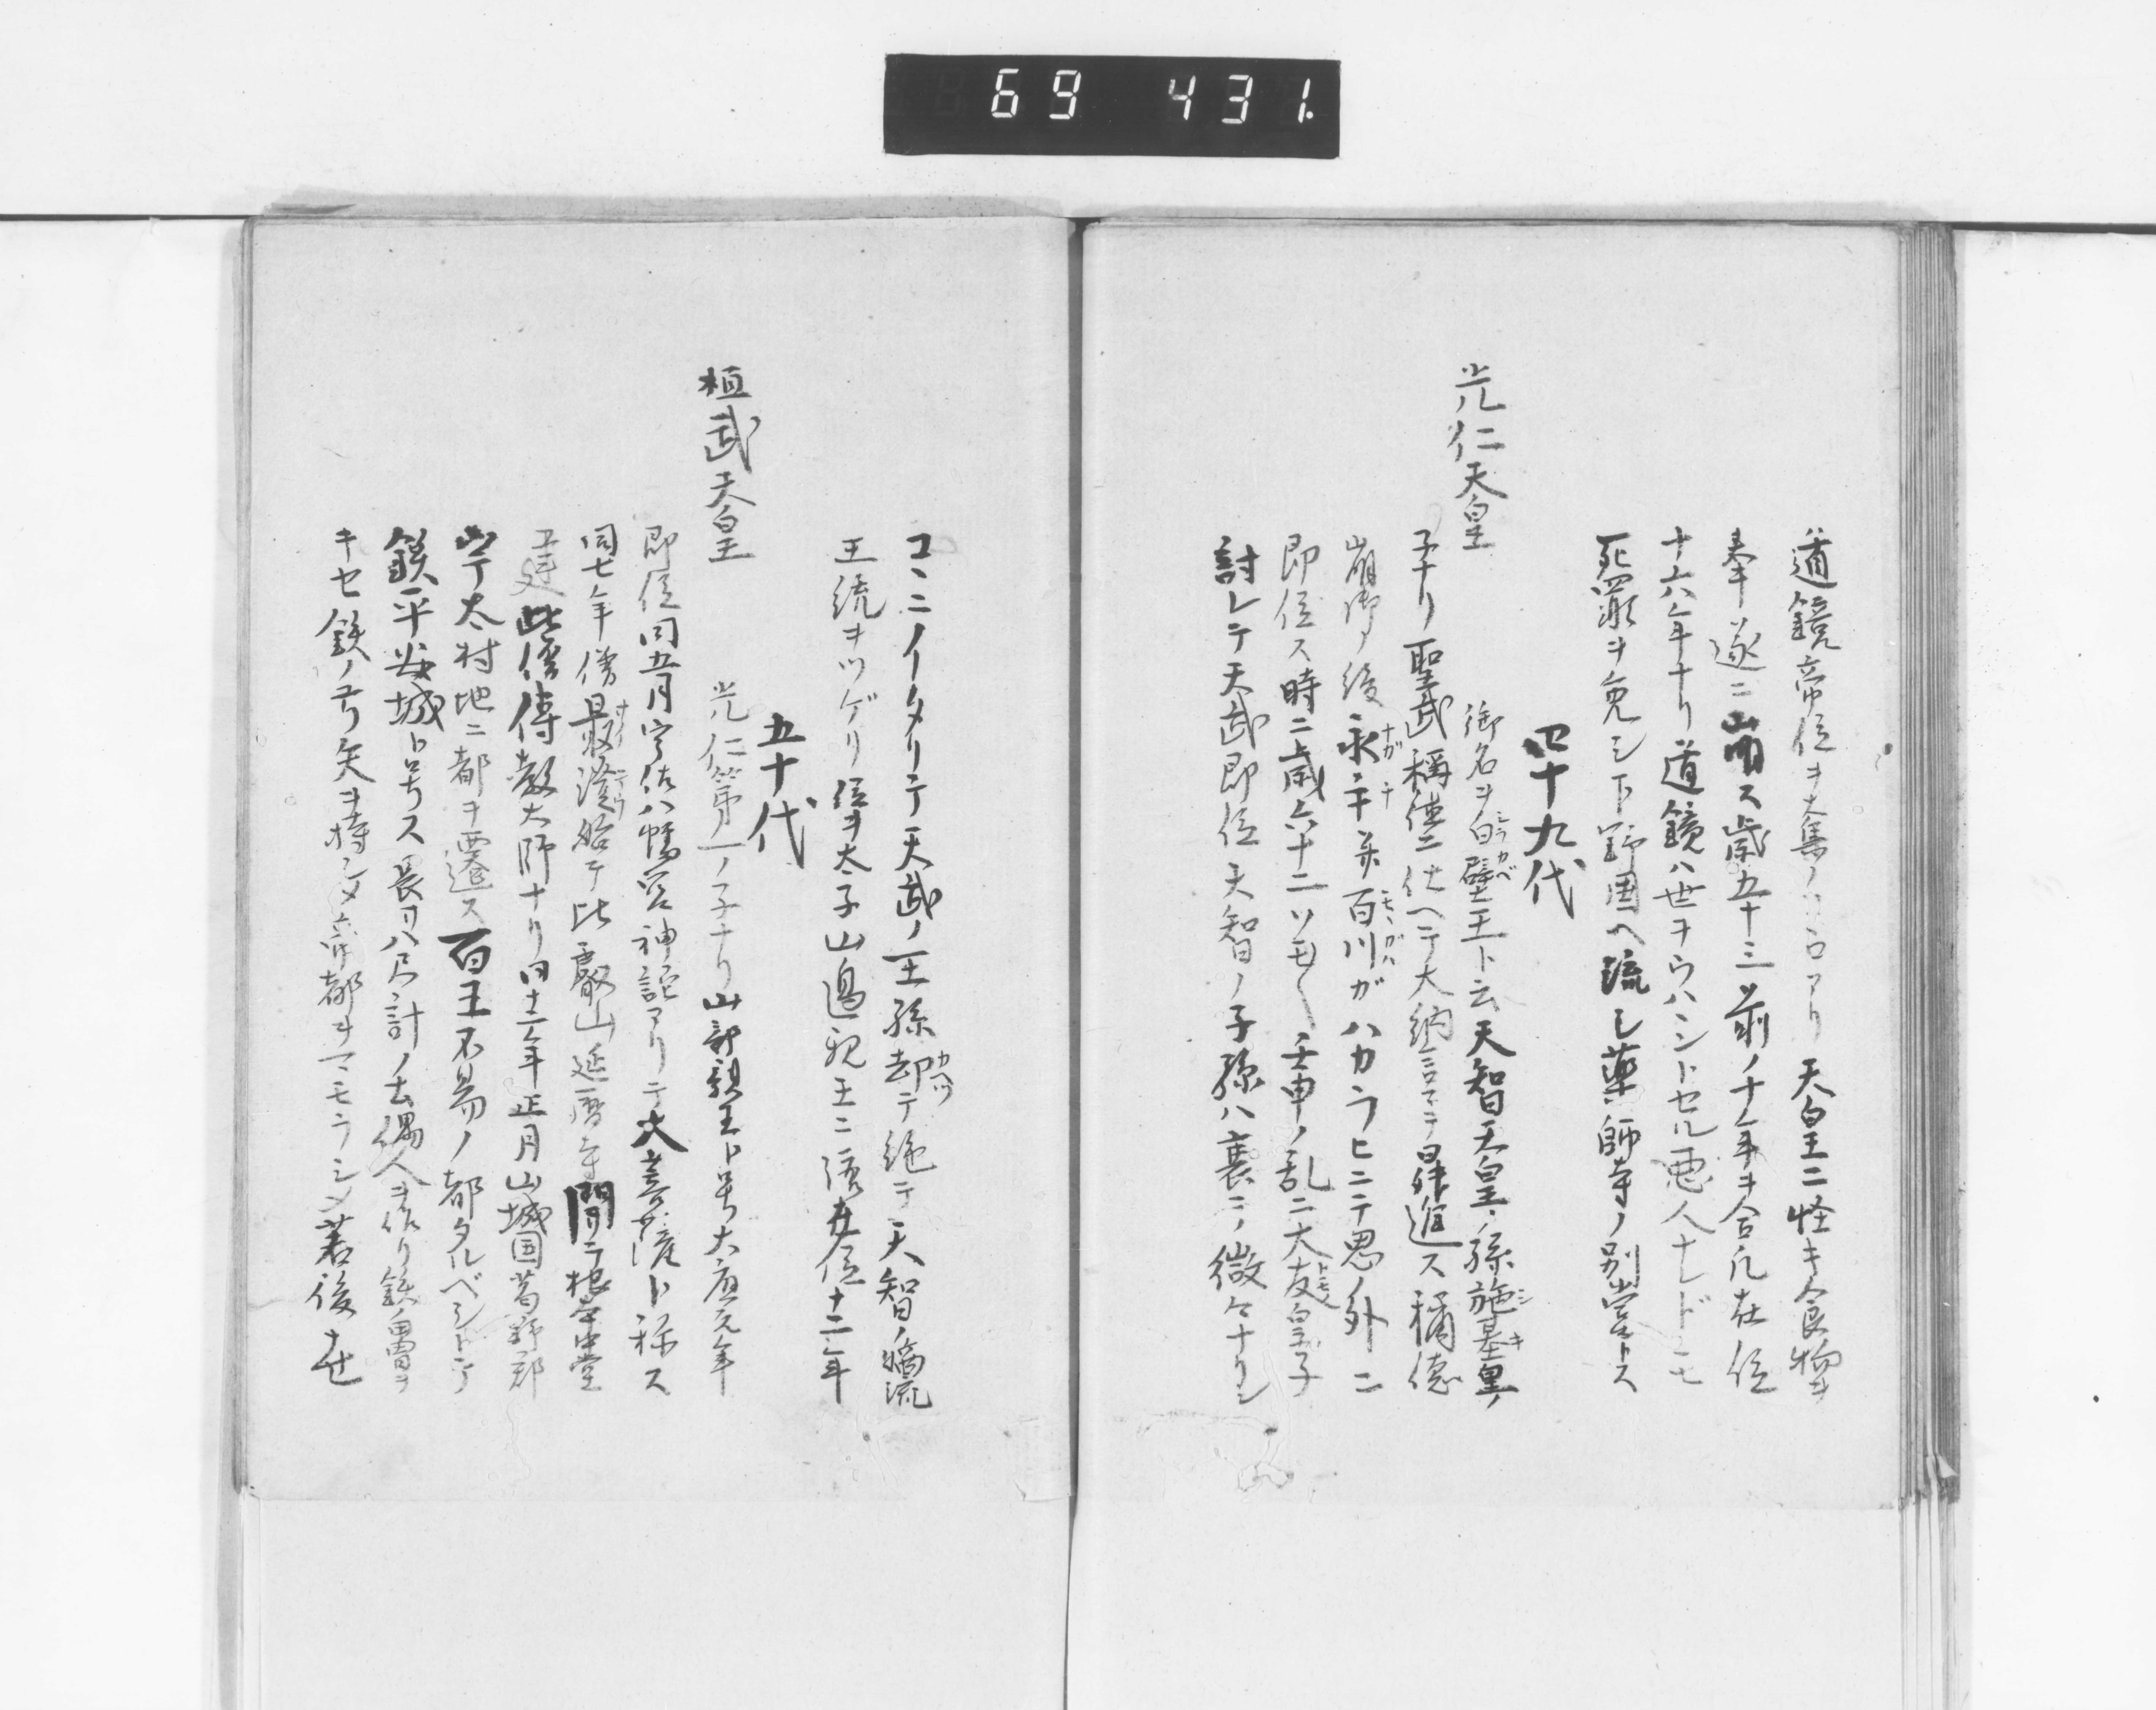 69 431.
道鏡帝位ヲ大集ノ心アリ天皇ニ怪キ食物ヲ
奉遂ニ崩ス歳五十三前ノ十年ヲ合凡在位
十六年ナリ道鏡ハ世ヲウハントセル悪人ナレドモ
死罪ヲ免シ下野国ヘ流シ薬師寺ノ別当トス
四十九代
光仁天皇
御名ヲ白壁王ト云天智天皇ノ孫施基皇ノ
シラカベ
シキ
子ナリ聖武稱徳ニ仕ヘテ大納言ニテ昇進ス稱徳
崩御ノ後永手并百川ガハカラヒニテ思ノ外ニ
ナガテ
モヽガハ
即位ス時ニ歳六十二ソモ〱壬申ノ乱ニ大友皇子
トモ
討レテ天武即位天智ノ子孫ハ衰ニノ微々ナリシ
コヽニイタリテ天武ノ王孫却テ絶テ天智ノ嫡流
カヘツ
王統ヲツゲリ位ヲ太子山邉親王ニ譲在位十二年
五十代
桓武天皇
光仁第一ノ子ナリ山部親王ト号大應元年
即位同五月宇佐八幡宮神託アリテ大菩薩ト称ス
同七年僧最澄始テ比叡山延暦寺間ニ根本中堂
サイテウ
ヲ建此僧傳教大師ナリ同十二年正月山城国葛野郡
宇太村地ニ都ヲ遷ス百王不易ノ都タルベシトテ
鉄平安城ト号ス長サ八尺計ノ土偶人ヲ作リ鉄ノ冑ヲ
キセ鉄ノ弓矢ヲ持シメ帝都ヲマモラシメ若後世